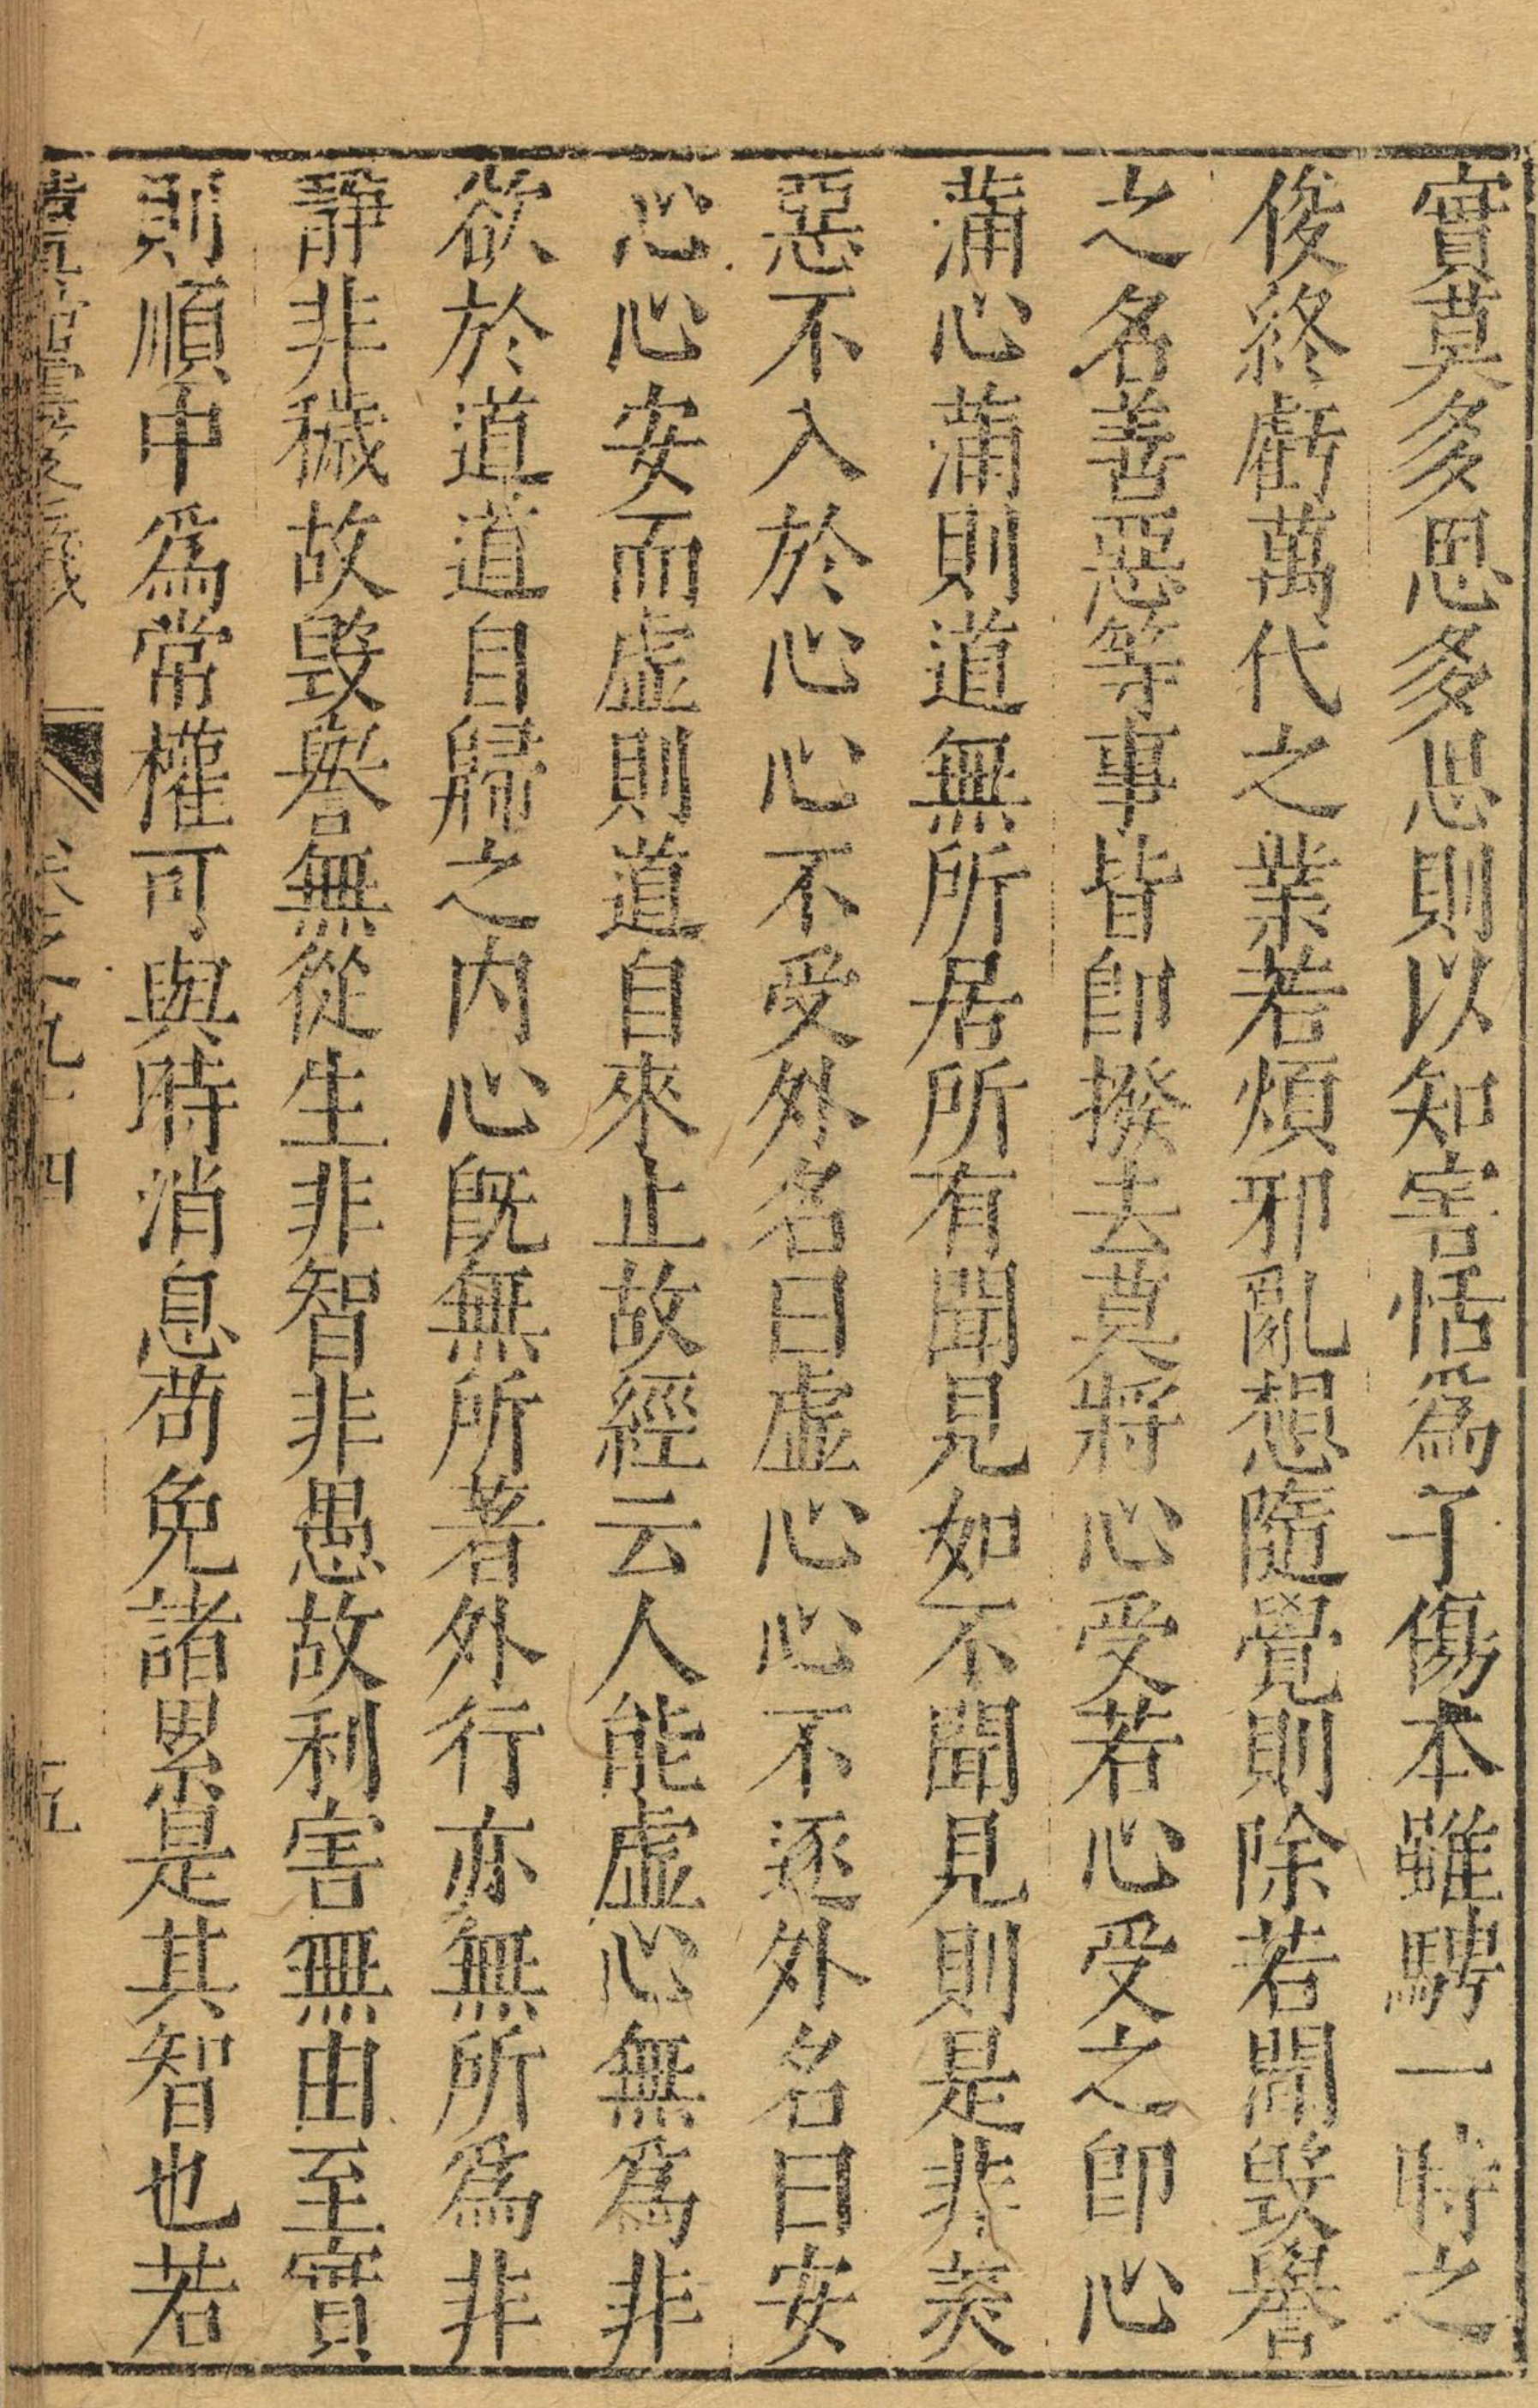 實莫多思多思則以知害恬爲子傷本雖騁一時之
俊終虧萬代之業若煩邪亂想隨覺則除若聞毀譽
之名善惡等事皆卽撥去莫將心受若心受之卽心
滿心滿則道無所居所有聞見如不聞見則是非美
惡不入於心心不受外名曰虛心心不逐外名曰安
心心安而虛則道自來止故經云人能虛心無爲非
欲於道道自歸之內心旣無所著外行亦無所爲非
靜非穢故毀譽無從生非智非愚故利害無由至實
則順中爲常權可與時消息苟免諸累是其智也若
五